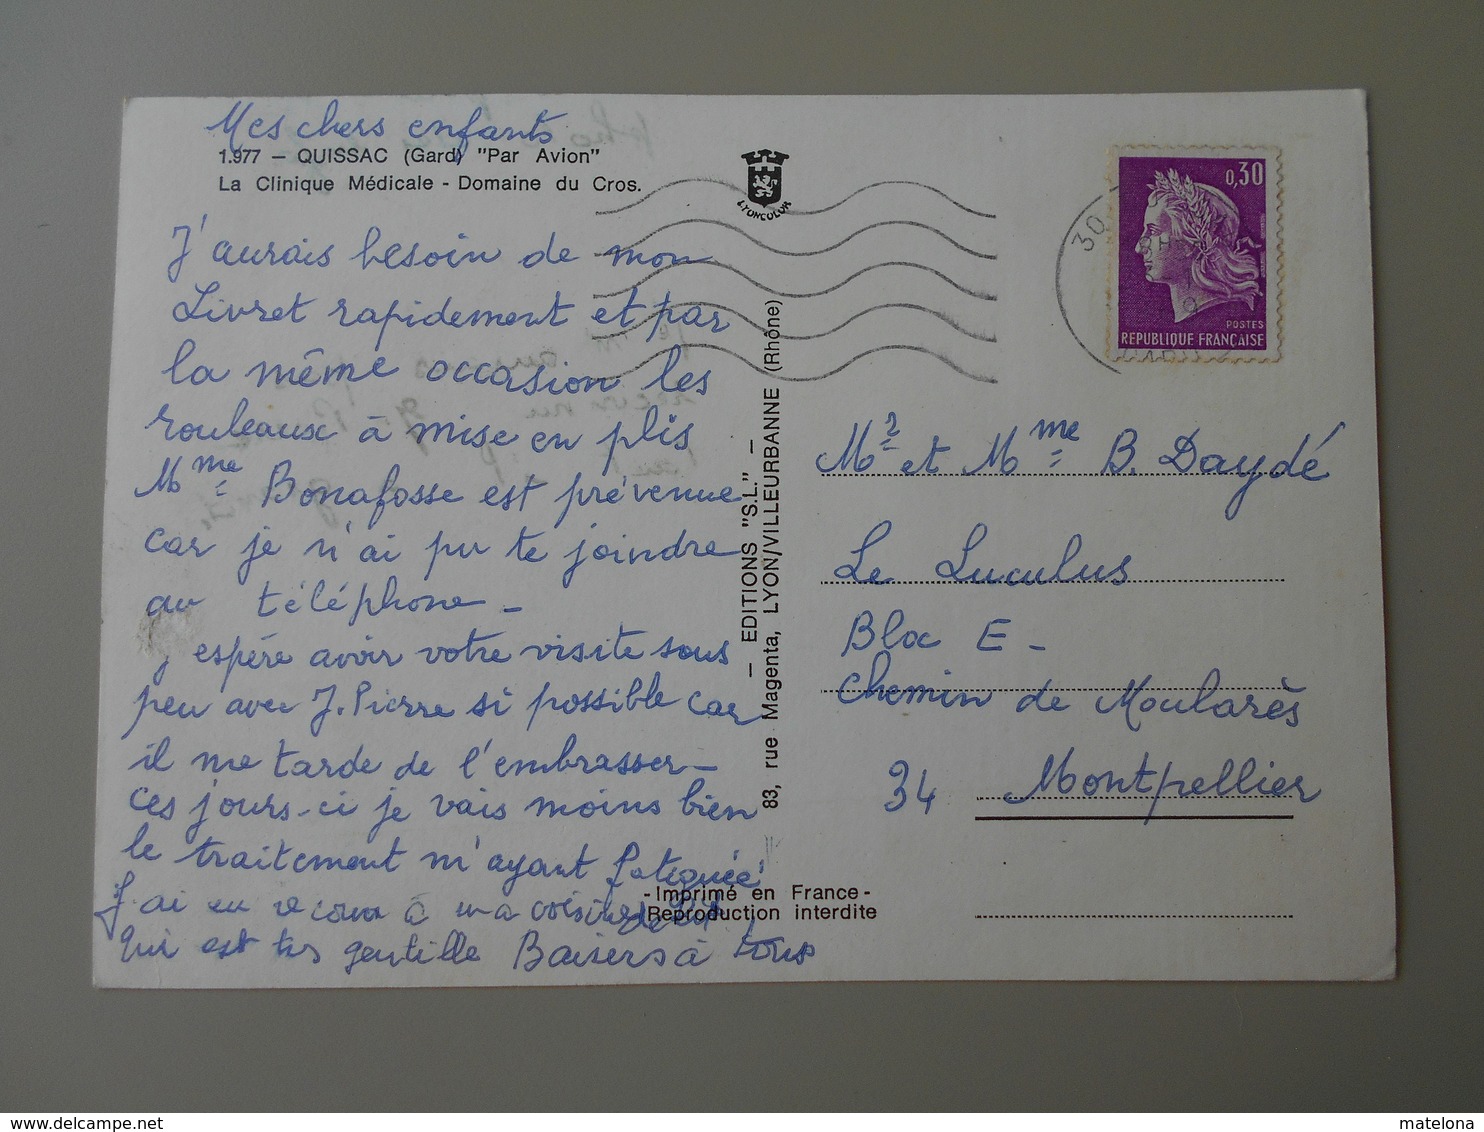 Mes chers enfants
1.977 – QUISSAC (Gard) "Par Avion"
La Clinique Médicale - Domaine du Cros.
LYONCOLOR
J'aurais besoin de mon
Livret rapidement et par
la même occasion les
rouleaux à mise en plis
Mme Bonafosse est prévenue
car je n'ai pu te joindre
au téléphone -
J'espère avoir votre visite sous
peu avec J. Pierre si possible car
il me tarde de l'embrasser -
ces jours-ci je vais moins bien
le traitement m'ayant fatiguée
J'ai eu recour à ma voisine de lit
qui est tres gentille Baisers à tous
— EDITIONS "S.L." —
83, rue Magenta, LYON/VILLEURBANNE (Rhône)
- Imprimé en France -
Reproduction interdite
30
0,30
POSTES
REPUBLIQUE FRANÇAISE
Mr et Mme B. Daydé
Le Luculus
Bloc E -
Chemin de Moularès
34 Montpellier
www.delcampe.net
matelona